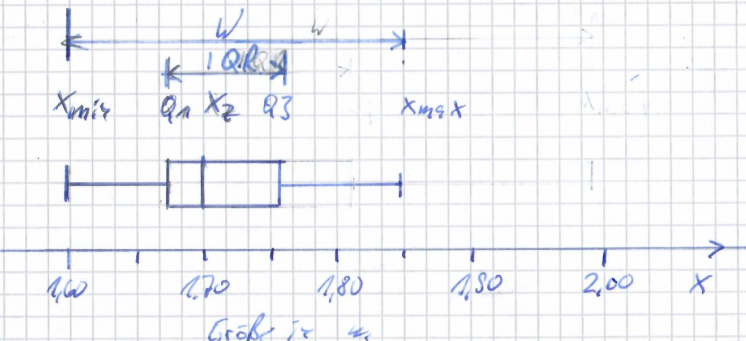 W W
IQR
Xmin Q1 XZ Q3 Xmax
1,60 1,70 1,80 1,90 2,00 X
Größe in m